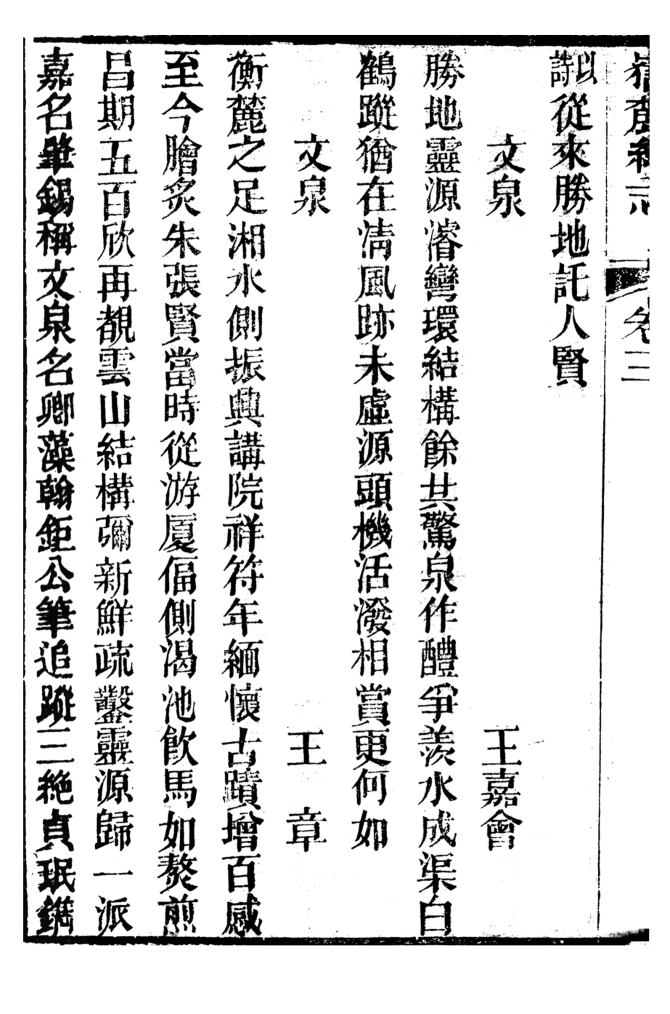 嶽麓續志　卷三
以詩從來勝地託人賢
文泉　王嘉會
勝地靈源濬彎環結構餘共驚泉作醴爭羨水成渠白
鶴蹤猶在淸風跡未虛源頭機活潑相賞更何如
文泉　王章
衡麓之足湘水側振興講院祥符年緬懷古蹟增百感
至今膾炙朱張賢當時從游廈偪側渴池飮馬如熬煎
昌期五百欣再覩雲山結構彌新鮮疏鑿靈源歸一派
嘉名肇錫稱文泉名卿藻翰鉅公筆追蹤三絶貞珉鐫